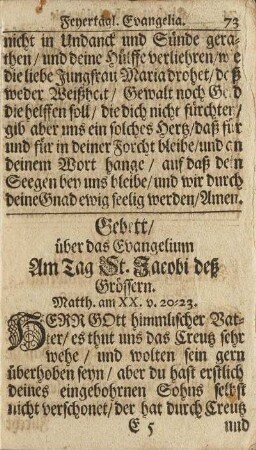 Feyertaal. Evangelia. 73
nicht in Undanck und Sünde gera-
then / und deine Hülffe verliehren / wie
die liebe Jungfrau Maria drohet / daß
weder Weißheit / Gewalt noch Geld
die helffen soll / die dich nicht fürchten /
gib aber uns ein solches Hertz / daß für
und für in deiner Forcht bleibe / und an
deinem Wort hange / auf daß dein
Seegen bey uns bleibe / und wir durch
deine Gnad ewig seelig werden / Amen.
Gebett /
über das Evangelium
Am Tag St. Jacobi deß
Grössern.
Matth. am XX. v. 20-23.
HERR GOtt himmlischer Vat-
ter / es thut uns das Creutz sehr
wehe / und wolten sein gern
überhoben seyn / aber du hast erstlich
deines eingebohrnen Sohns selbst
nicht verschonet / der hat durch Creutz
E 5 und